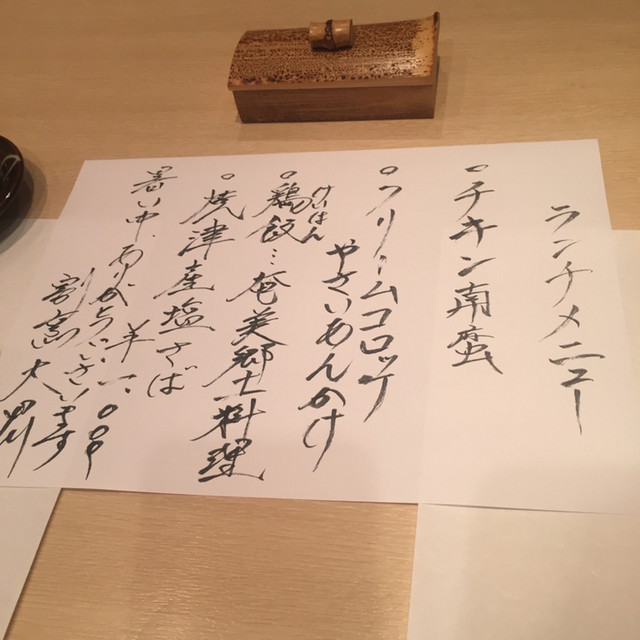 ランチメニュー
○チキン南蛮
○クリームコロッケ
やさいあんかけ
けいはん
○鶏飯…奄美郷土料理
○焼津産塩さば
暑い中、ありがとうございます
割烹大